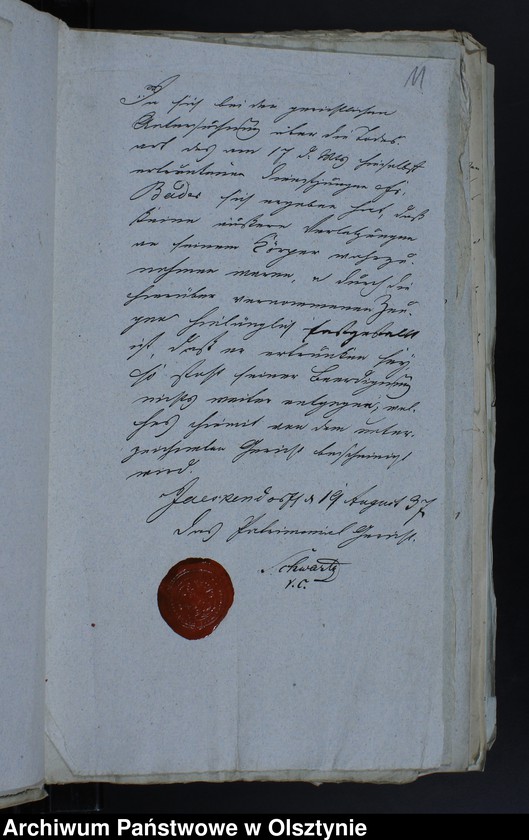 11
Da sich bei der gerichtlichen
Untersuchung über die Todes
art des am 17 d. Mts hieselbst
ertrunkenen Dienstjungen
Bades sich ergeben hat, daß
keine äußere Verletzungen
an seinem Körper wahrzu-
nehmen waren, u durch die
hierüber vernommenen Zeu-
gen hinlänglich festgestellt
ist, daß er ertrunken sey,
so steht seiner Beerdigung
nichts weiter entgegen, wel-
ches hiemit von dem unter-
zeichneten Gericht bescheinigt
wird.
Jaeskendorff d 19 August 37
Das Patrimonial Gericht.
Schwartz
v.c.
Archiwum Państwowe w Olsztynie